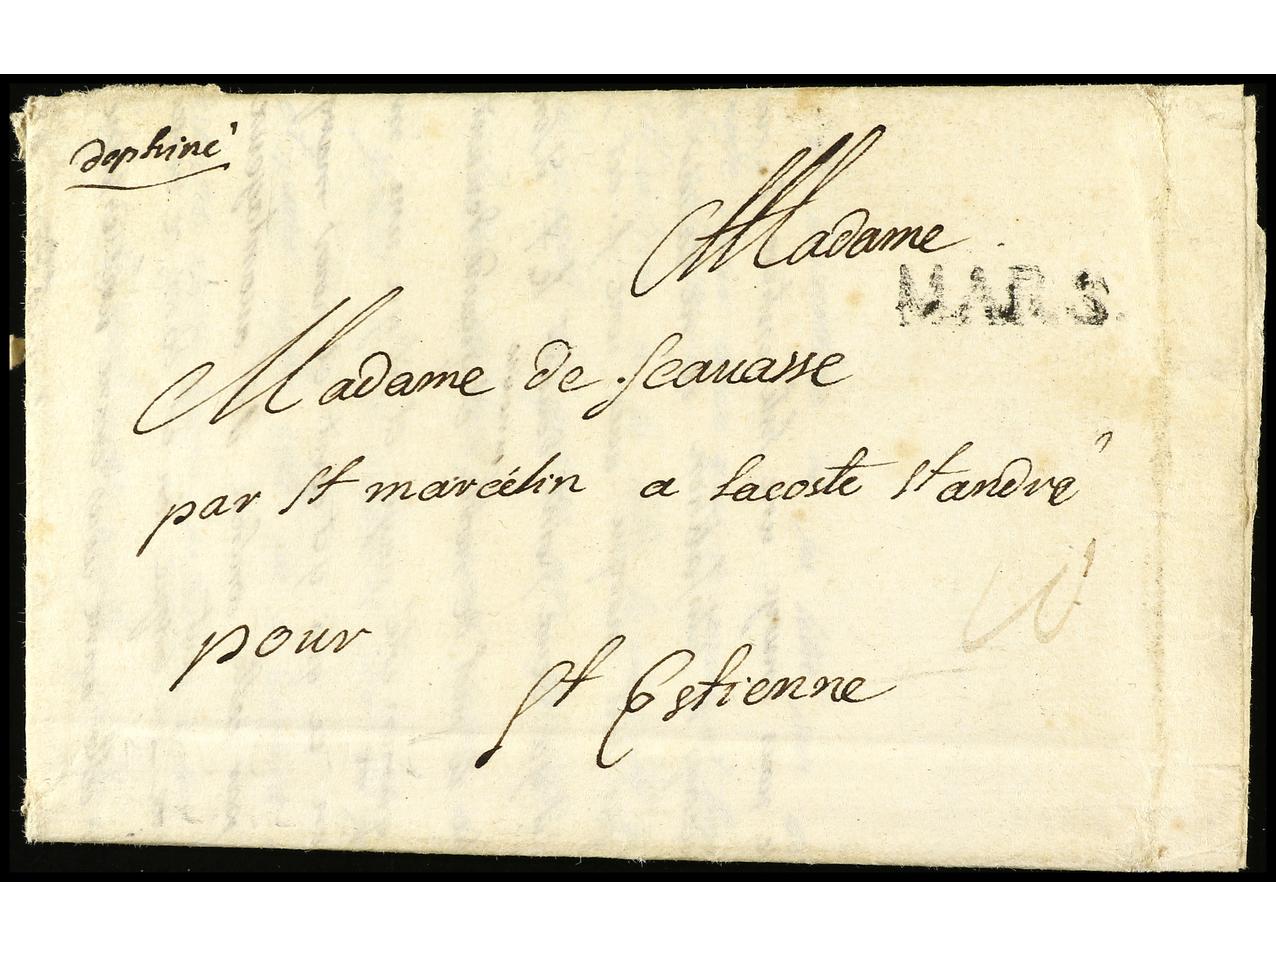 dophiné
Madame
MARS.
Madame de Scauasse
par St marcélin a lacoste St andré
pour
St Estienne